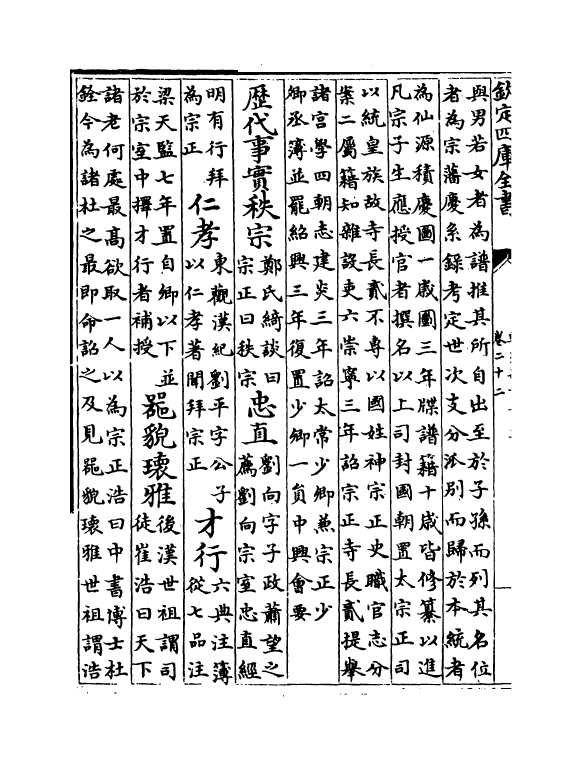 欽定四庫全書
卷二十二
與男若女者為譜推其所自出至於子孫而列其名位
者為宗藩慶系錄考定世次支分派別而歸於本統者
為仙源積慶圖一歲圖三年牒譜籍十歲皆修纂以進
凡宗子生應授官者撰名以上司封國朝置太宗正司
以統皇族故寺長貳不專以國姓神宗正史職官志分
案二屬籍知雜設吏六崇寧三年詔宗正寺長貳提舉
諸宮學四朝志建炎三年詔太常少卿兼宗正少
卿丞簿並罷紹興三年復置少卿一員中興會要
歷代事實秩宗
鄭氏綺談曰
宗正曰秩宗
忠直
劉向字子政蕭望之
薦劉向宗室忠直經
明有行拜
為宗正
仁孝
東觀漢紀劉平字公子
以仁孝著聞拜宗正
才行
六典注簿
從七品注
梁天監七年置自卿以下並
於宗室中擇才行者補授
噐貌瓌雅
後漢世祖謂司
徒崔浩曰天下
諸老何處最髙欲取一人以為宗正浩曰中書博士杜
銓今為諸杜之最即命詔之及見噐貌瓌雅世祖謂浩